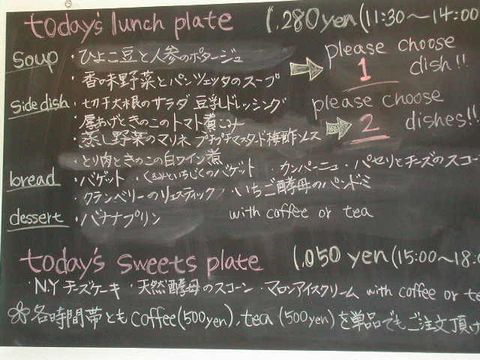 today's lunch plate 1,280yen (11:30〜14:00
soup ・ひよこ豆と人参のポタージュ
・香味野菜とパンツェッタのスープ
please choose
1 dish!!
side dish ・切干大根のサラダ 豆乳ドレッシング
・厚あげときのこのトマト煮こみ
・蒸し野菜のマリネ プチプチマスタード梅酢ソース
・とり肉ときのこの白ワイン煮
please choose
2 dishes!!
bread ・バゲット ・くるみといちじくのバゲット ・カンパーニュ ・パセリとチーズのスコー
・クランベリーのリュスティック ・いちご酵母のパンドミ
dessert ・バナナプリン with coffee or tea
today's sweets plate 1,050 yen (15:00〜18:0
・NYチーズケーキ ・天然酵母のスコーン ・マロンアイスクリーム with coffee or te
各時間帯ともcoffee(500yen)、tea(500yen)を単品でもご注文頂け